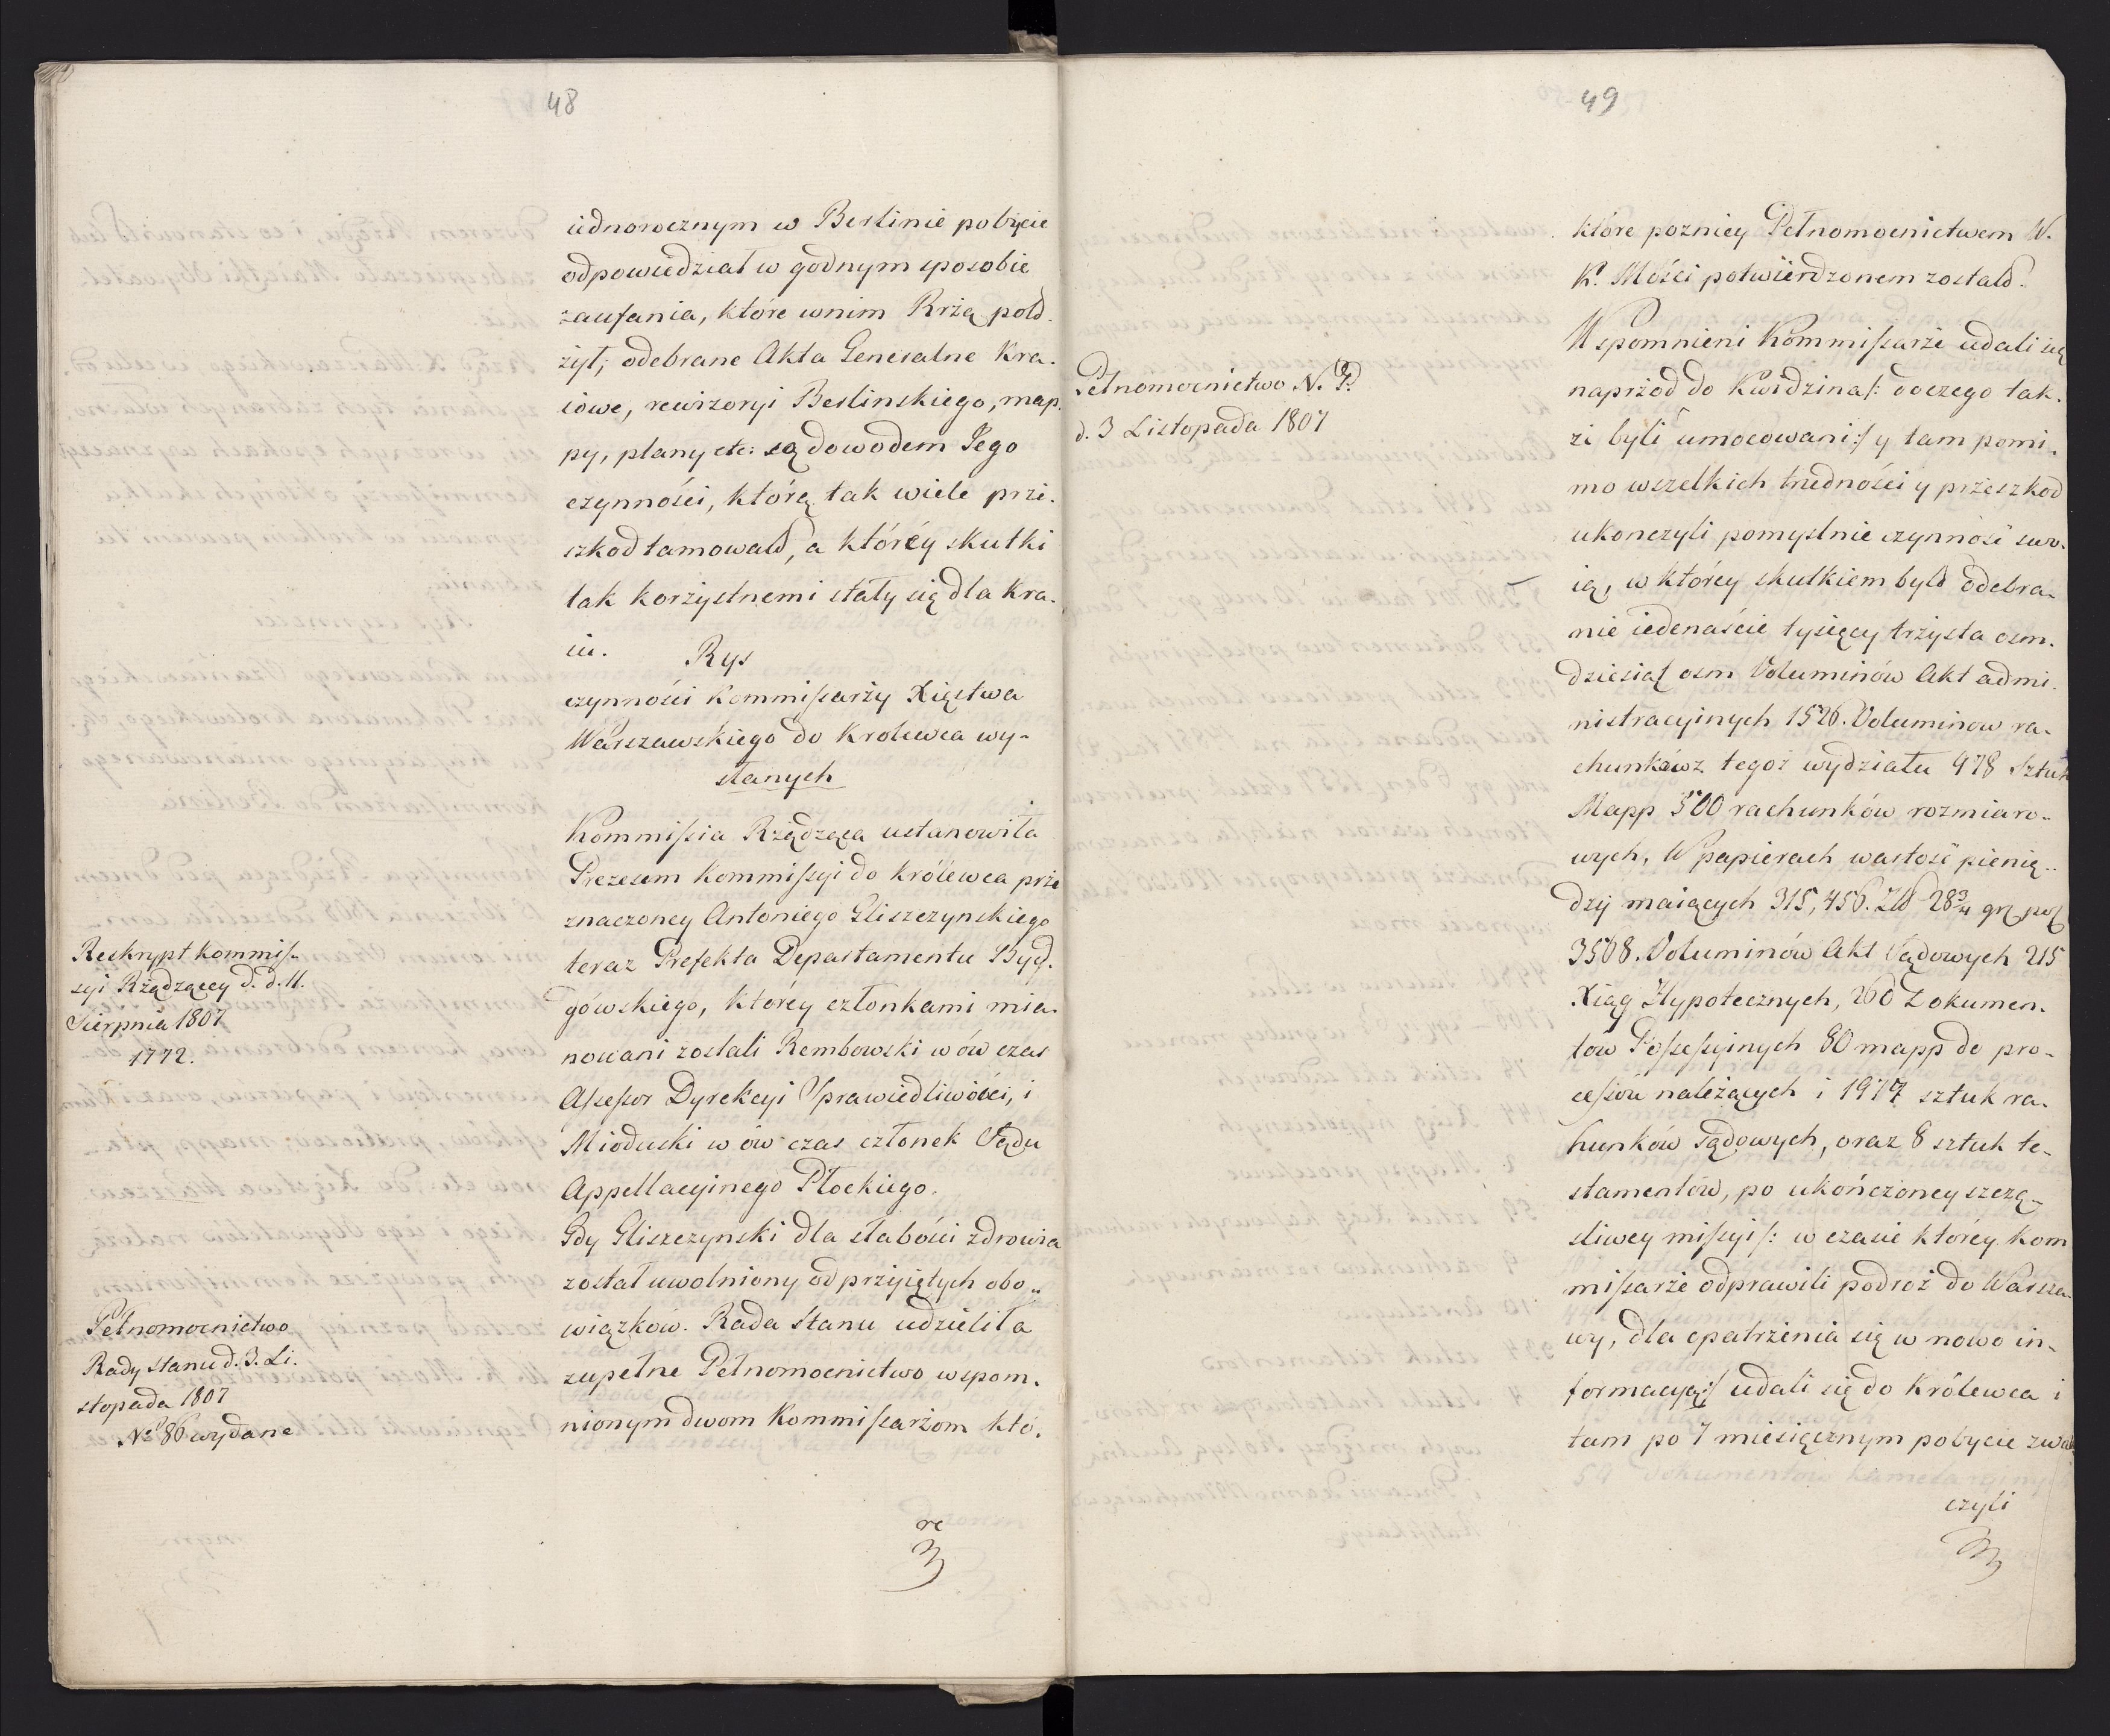 48
iednorocznym w Berlinie pobycie
odpowiedział w godnym sposobie
zaufania, które wnim Rrzą poło.
żył; odebrane Akta Generalne Kra.
iowe, rewizoryi Berlinskiego, map.
py, plany etc: są dowodem Jego
czynności, którą tak wiele prze.
szkod tamowało, a którey skutki
tak korzystnemi stały się dla Kra.
iu.
Rys
czynności Kommißarży Xięstwa
Warszawskiego do Krolewca wy-
słanych
Kommißia Rżądząca ustanowiła
Prezesem Kommißyi do Królewca prze
znaczoney Antoniego Gliszczynskiego
teraz Prefekta Departamentu Byd.
gówskiego, którey członkami mia.
nowani zostali Rembowski w ów czas
Aßeßor Dyrekcyi Sprawiedliwości, i
Mioduski w ów czas członek Sądu
Appellacyinego Płockiego.
Gdy Gliszczynski dla słabości zdrowia
został uwolniony od przyiętych obo„
wiązkow. Rada Stanu udzieliła
zupełne Pełnomocnictwo wspom.
nionym dwom Kommißarżom któ.
re
Reskrypt Kommiß.
syi Rżądzącey d. d. 11.
Sierpnia 1807
1772.
Pełnomocnictwo
Rady stanu d. 3. Li.
stopada 1807
No 86 wydane
49
Pełnomocnictwo N. P.
d. 3 Listopada 1807
które pozniey Pełnomocnictwem W.
K. Mości potwierdzonem zostało.
Wspomnieni Kommißarże udali się
naprżod do Kwidzina /: do czego tak.
że byli umocowani :/ y tam pomi.
mo wszelkich trudności y przeszkod
ukonczyli pomyslnie czynność swo.
ią, w którey skutkiem było odebra.
nie iedenaście tysięcy trzysta osm.
dziesiąt osm Voluminów Akt admi.
nistracyinych 1526. Voluminow ra.
chunków z tegoż wydziału 478 Sztuk
Mapp 500 rachunków rozmiaro-
wych, W papierach wartość pienię..
dzy maiących 315,456. Zło 28 3/4 gr pol
3508. Voluminów Akt Sądowych 215
Xiąg Hypotecznych, 260 Dokumen.
tów Poßeßyinych 80 mapp do pro-
ceßów należących i 1977 sztuk ra.
hunków Sądowych, oraz 8 sztuk te-
stamentów, po ukończoney szczę-
sliwey mißyi /: w czasie którey Kom
mißarże odprawili podroż do Warsza-
wy, dla opatrżenia się w nowo in-
formacyą :/ udali się do Królewca i
tam po 7 miesięcznym pobycie zwal
czyli